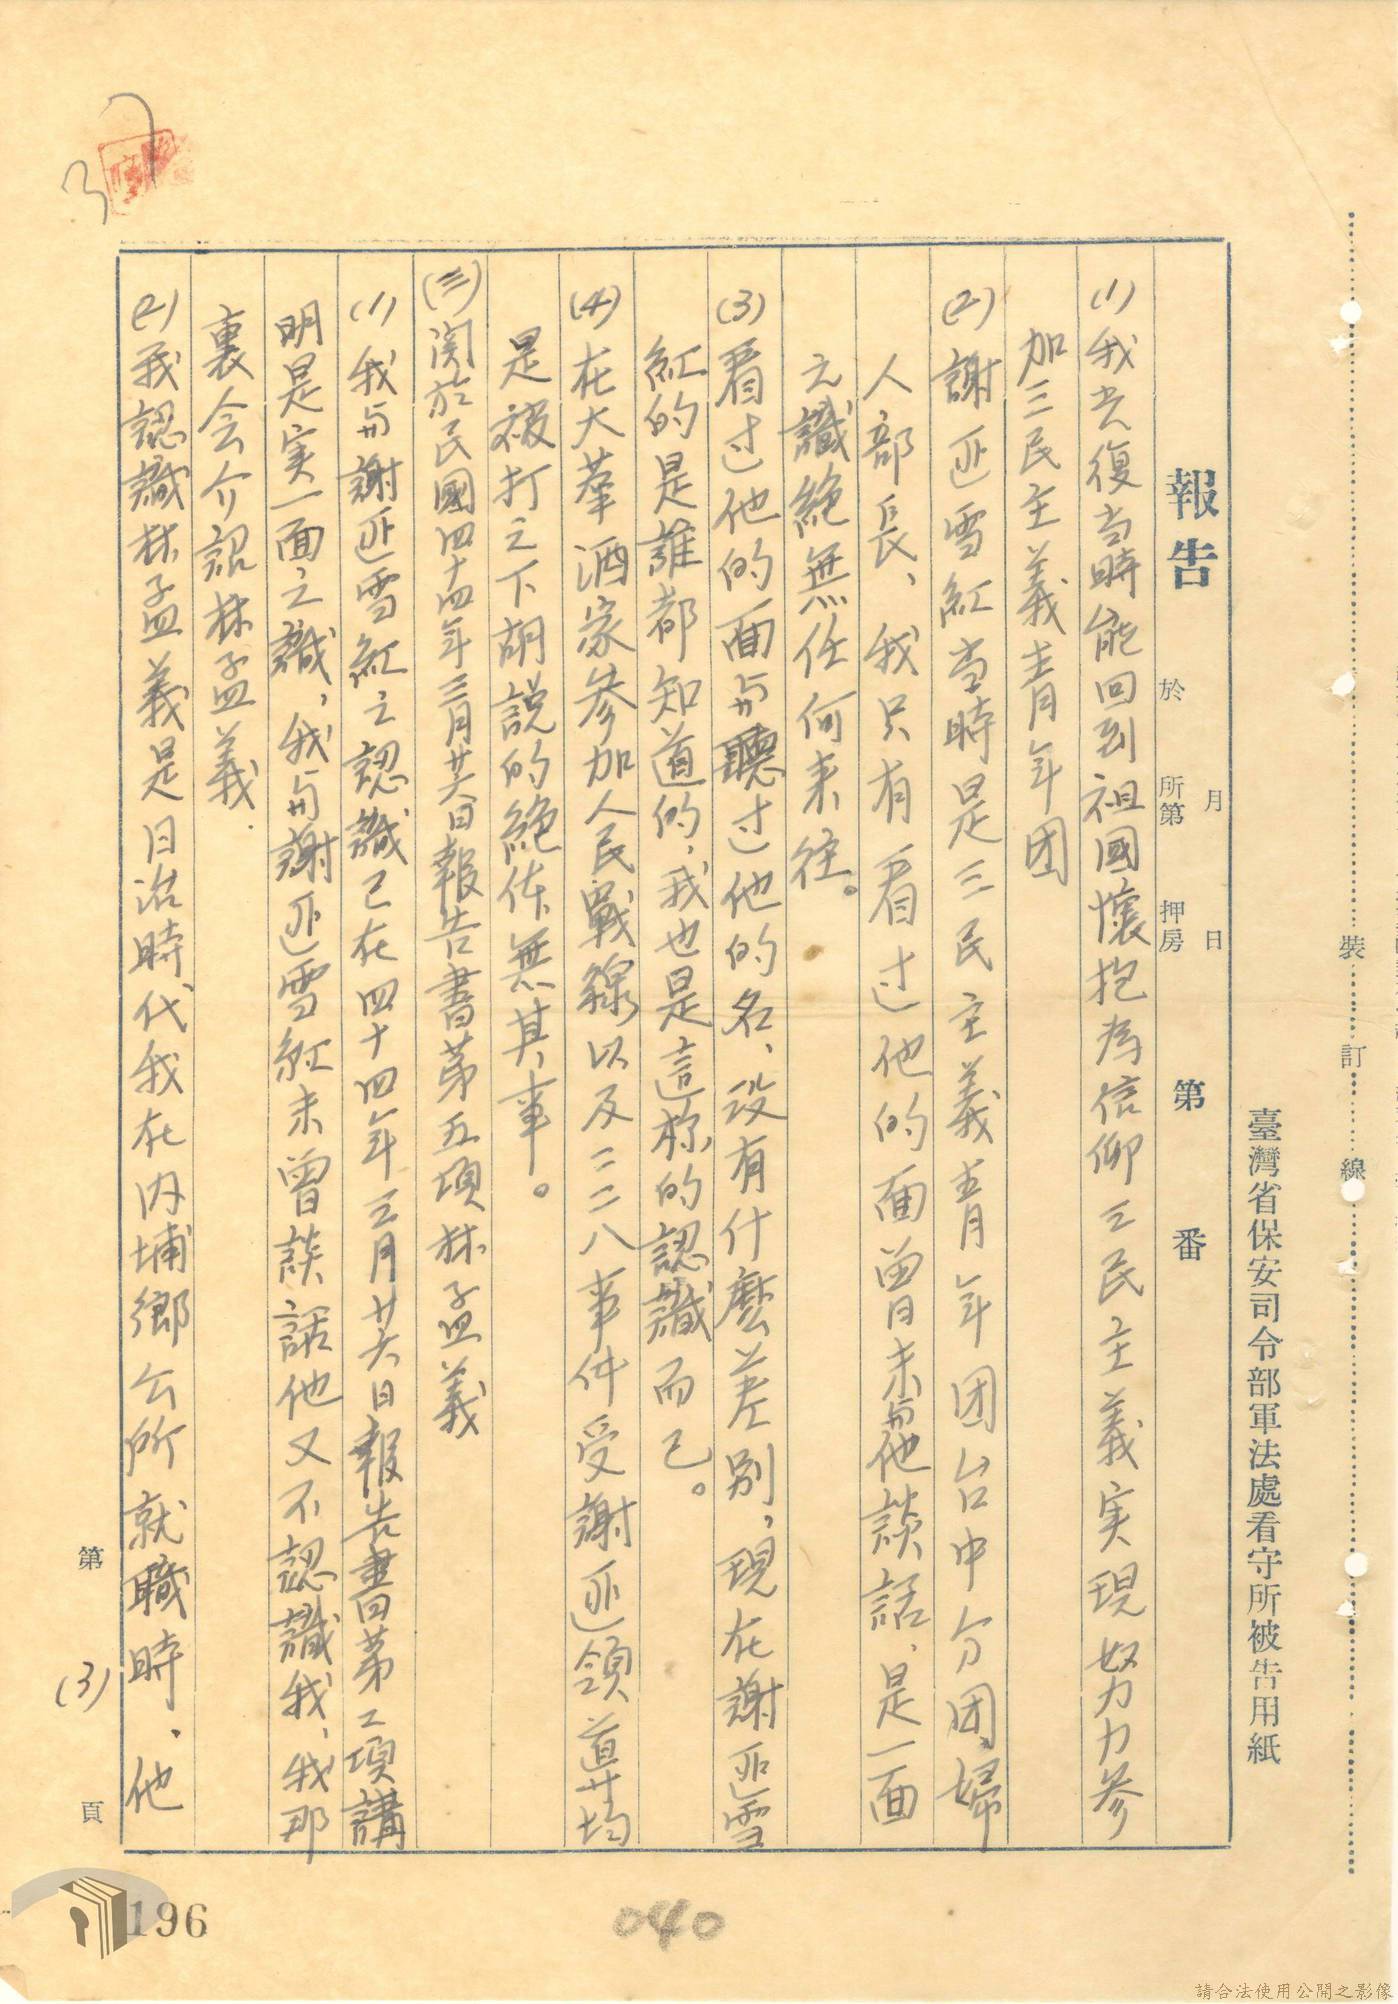 裝訂線
臺灣省保安司令部軍法處看守所被告用紙
報告 於 月 日 所第 押房 第 番
(1)我光復当時能回到祖國懷抱為信仰三民主義实現努力参
加三民主義青年団
(2)謝迊雪紅当時是三民主義青年団台中分団婦
人部長、我只有看过他的面曽未与他談話、是一面
之識絶無任何来徃。
(3)看过他的面与聽过他的名、没有什麽差別，現在謝迊雪
紅的是誰都知道的，我也是這様的認識而已。
(4)在大華酒家参加人民戰線以及二二八事件受謝迊領道廿均
是被打之下胡説的絶体無其事。
(三)関於民國四十四年三月廿六日報告書第五項林孟義
(1)我与謝迊雪紅之認識已在四十四年三月廿六日報告書第二項講
明是实一面之識，我与謝迊雪紅未曾談話他又不認識我，我那
裏会介紹林孟義．
(2)我認識林孟義是日治時代我在内埔鄉公所就職時、他
第 (3) 頁
37
196
040
請合法使用公開之影像